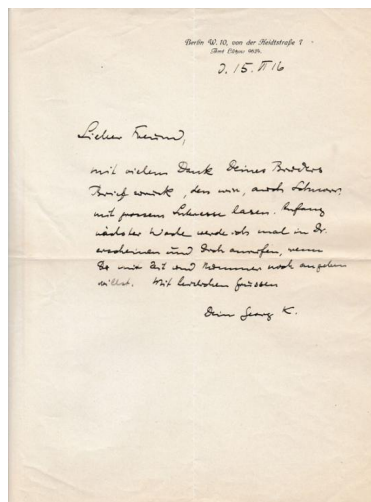 Berlin W. 10, von der Heidtstraße 1
Amt Lützow 9624.
D. 15. II 16
Lieber Freund,
mit vielem Dank Deines Bruders
Brief zurück, den wir, auch
mit grossem Interesse lasen. Anfang
nächster Woche werde ich mal in Dr.
erscheinen und Dich anrufen, wenn
Du mir Zeit und Nummer noch angeben
willst. Mit herzlichen Grüssen
Dein Georg K.